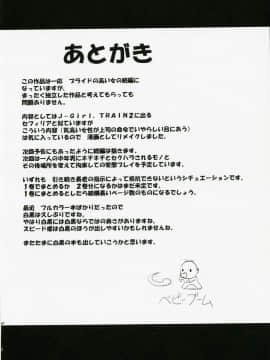 あとがき
この作品は一応　プライドの高い女の続編に
なっていますが、
まったく独立した作品と考えてもらっても
問題ありません。
内容としてはJ-GirL.TRAIN2に出る
セフィリアと似ていますが
こういう内容(気高い女が上司の命令でいやらしい目にあう)
は気に入っているので　漫画としてリメイクしました。
次回予告にもあったように続編は描きます。
次回は一人の中年男にネチネチとセクハラされるモノと
その後場所を変えて拘束されて凌辱プレイを予定しています。
いずれも　引き続き長老の指示によって抵抗できないというシチュエーションです。
1巻でまとめるか　2巻分になるかはまだ未定です。
1巻でまとめたら結構長いページ数のものになるでしょう。
最近　フルカラー本ばかりだったので
白黒は久しぶりですね。
やはり白黒には白黒ならではの良さがありますね。
スピード感は白黒のほうが出しやすいかもしれませんね。
またたまに白黒の本も出していこうかと思います。
ベビーブーム